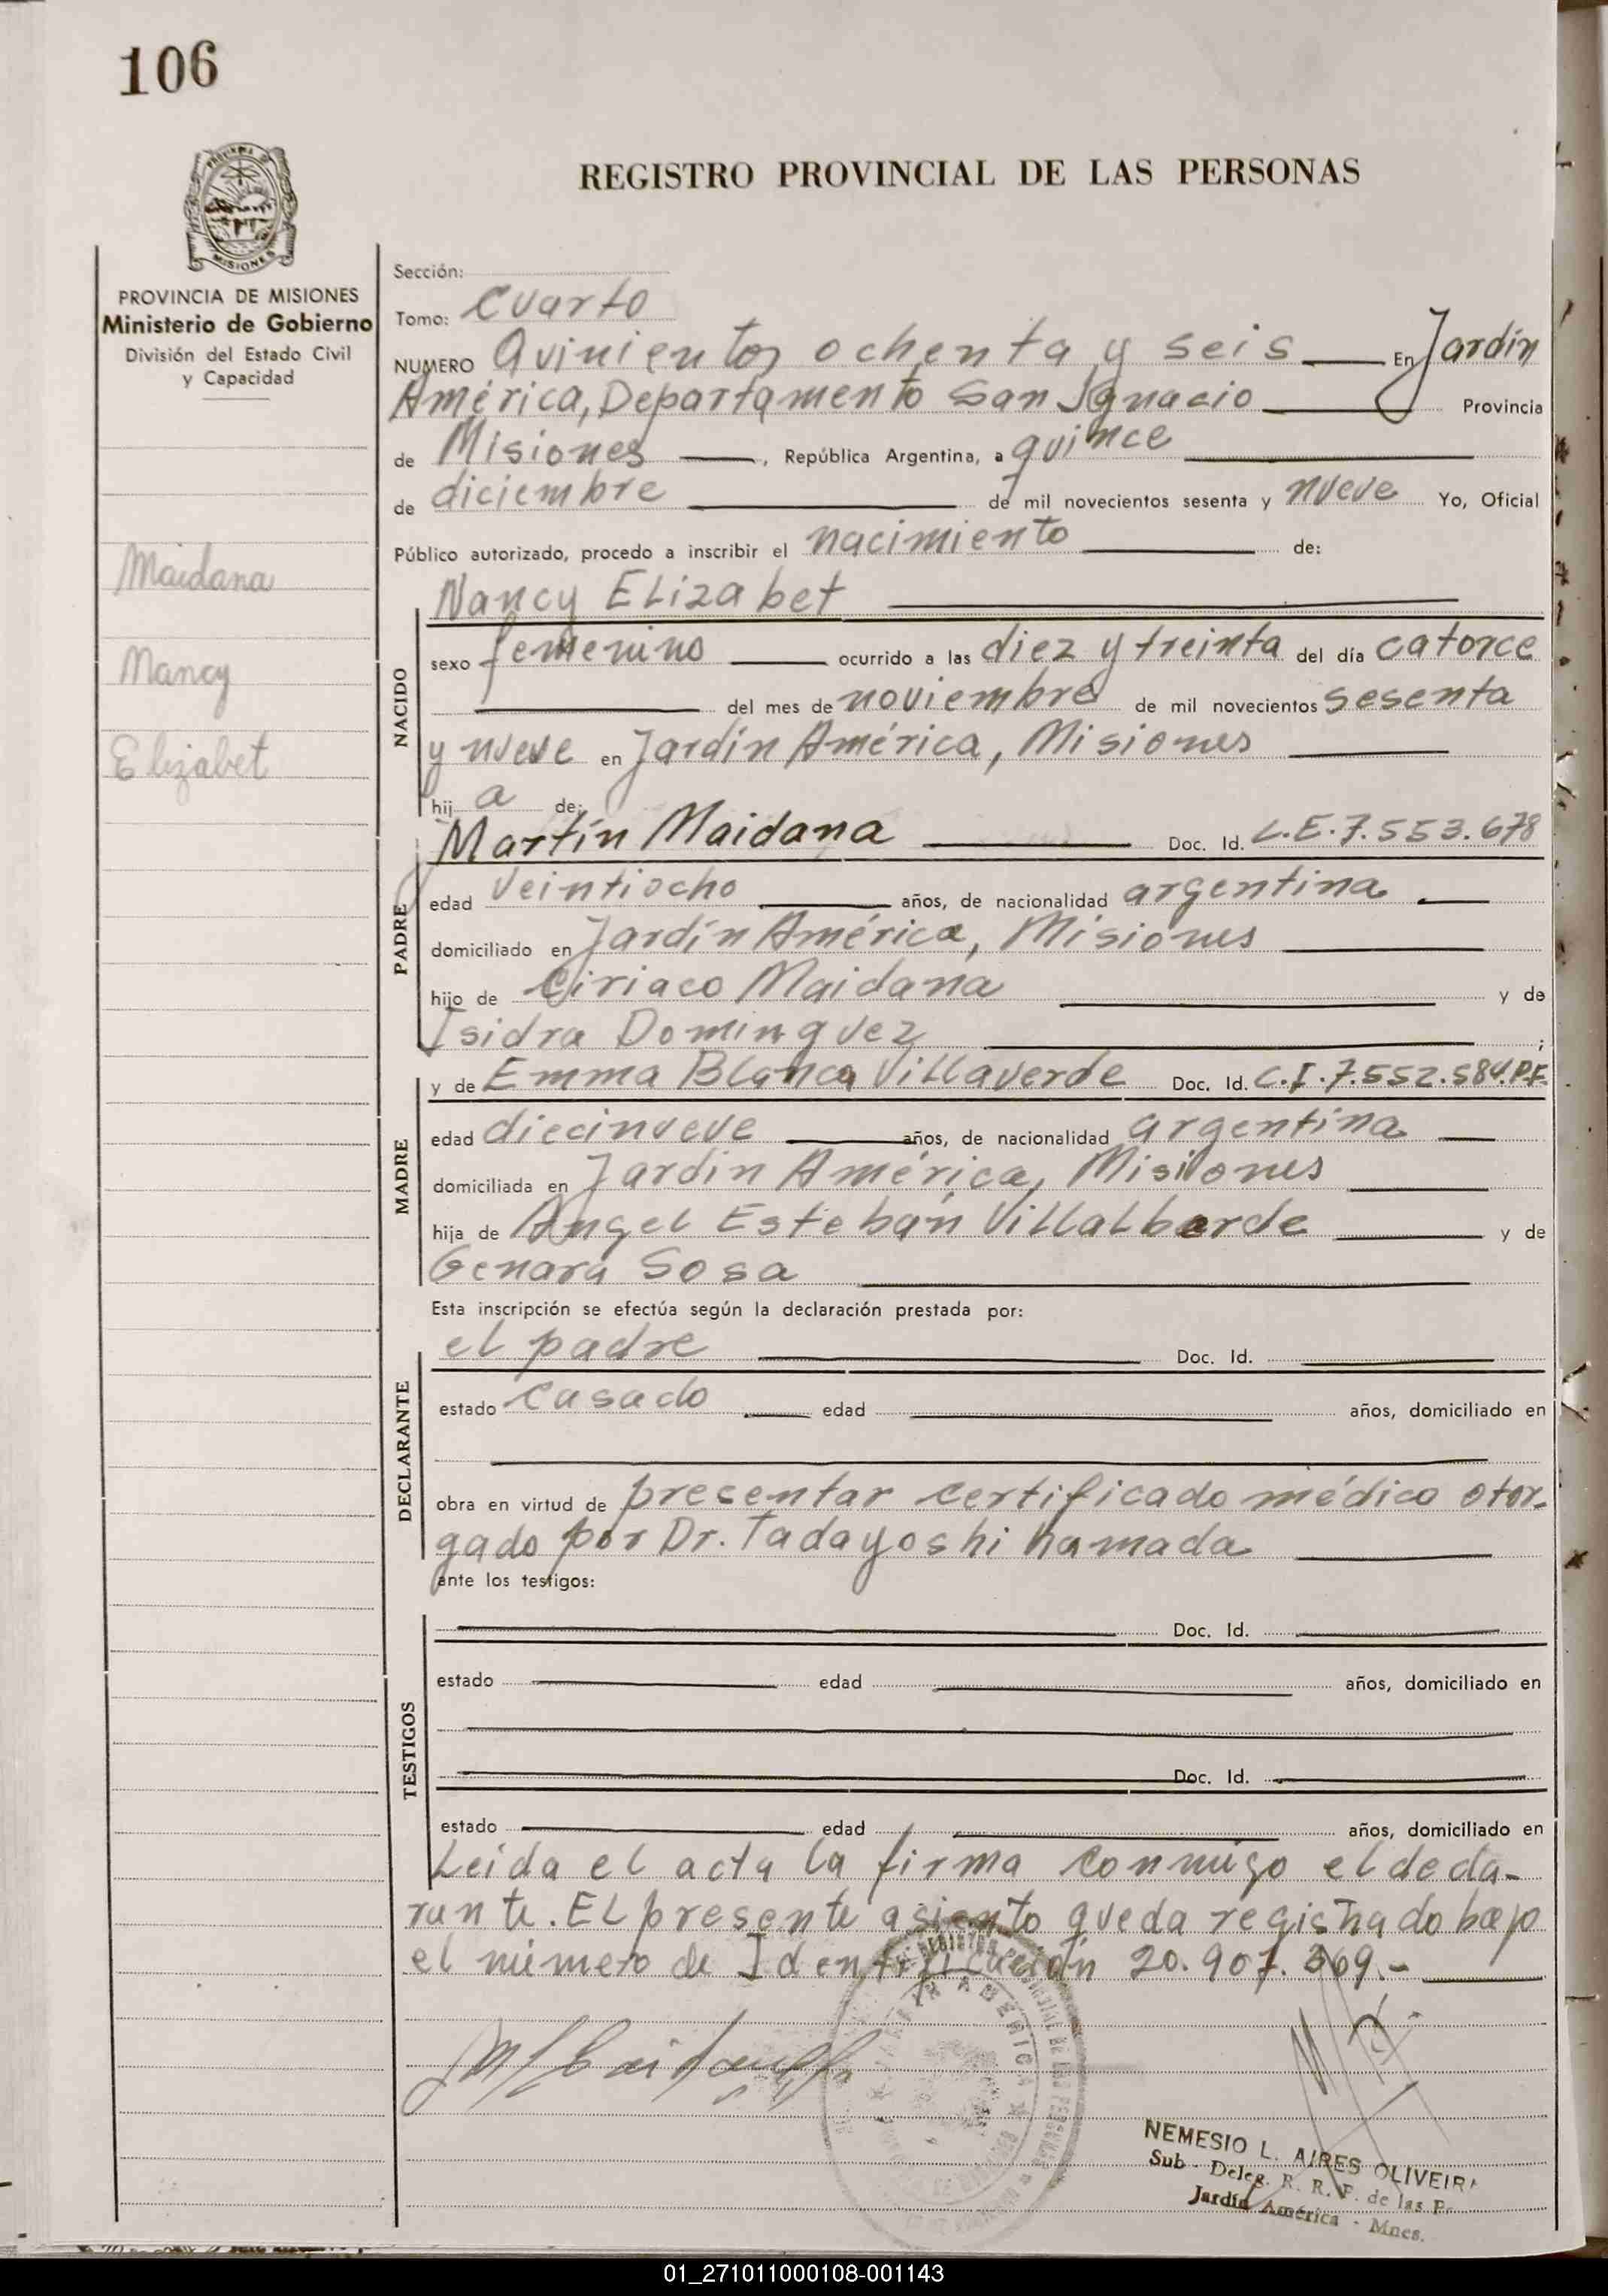 106
REGISTRO PROVINCIAL DE LAS PERSONAS
PROVINCIA DE MISIONES
Ministerio de Gobierno
División del Estado Civil
y Capacidad
Maidana
Nancy
Elizabet
Sección:
Tomo: Cuarto
NUMERO Quinientos ochenta y seis En Jardín
América, Departamento San Ignacio Provincia
de Misiones, República Argentina, a quince
de diciembre de mil novecientos sesenta y nueve Yo, Oficial
Público autorizado, procedo a inscribir el nacimiento de:
Nancy Elizabet
NACIDO
sexo femenino ocurrido a las diez y treinta del día catorce
del mes de noviembre de mil novecientos sesenta
y nueve en Jardín América, Misiones
hij a de:
Martín Maidana Doc. Id. L.E.7.553.678
PADRE
edad veintiocho años, de nacionalidad argentina
domiciliado en Jardín América, Misiones
hijo de Ciriaco Maidana y de
Isidra Dominguez ;
y de Emma Blanca Villaverde Doc. Id. C.I.7.552.584.P.F.
MADRE
edad diecinueve años, de nacionalidad argentina
domiciliada en Jardín América, Misiones
hija de Angel Esteban Villalberde y de
Genara Sosa
Esta inscripción se efectúa según la declaración prestada por:
el padre Doc. Id.
DECLARANTE
estado casado edad años, domiciliado en
obra en virtud de presentar certificado médico otor-
gado por Dr. Tadayoshi hamada
ante los testigos:
Doc. Id.
TESTIGOS
estado edad años, domiciliado en
Doc. Id.
estado edad años, domiciliado en
Leida el acta la firma conmigo el decla-
rante. El presente asiento queda registrado bajo
el número de Identificación 20.907.369.-
JARDIN AMERICA
NEMESIO L. AIRES OLIVEIRA
Sub - Deleg. R. R. P. de las P.
Jardín América - Mnes.
01_271011000108-001143